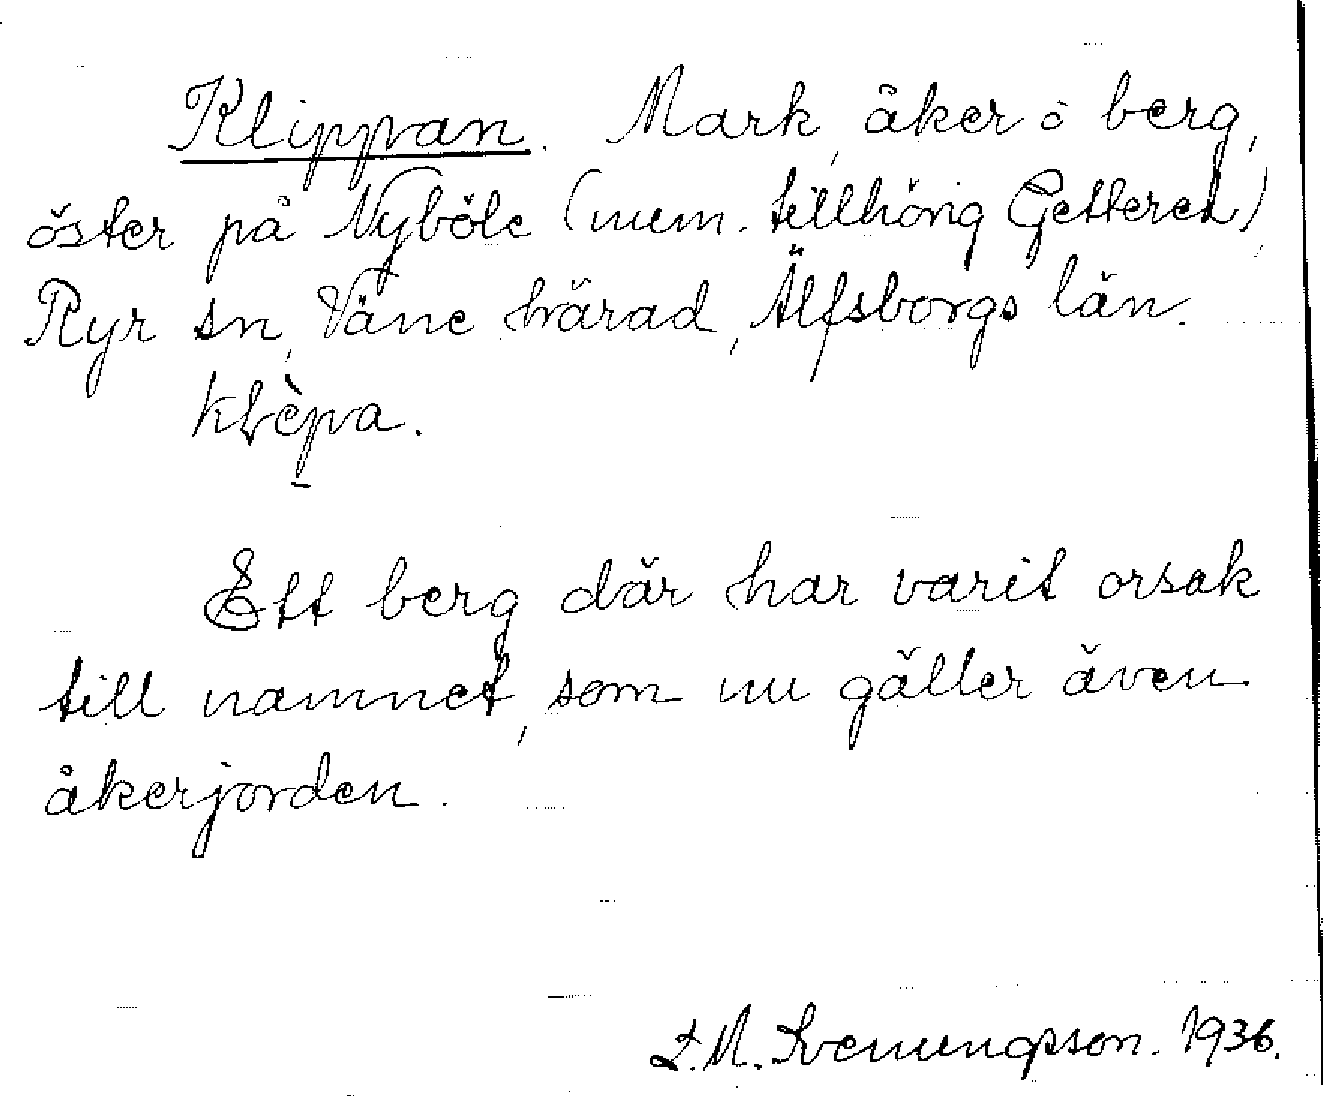 Klippan. Mark, åker o berg,
öster på Nyböle (num. tillhörig Getteret),
Ryr sn, Väne härad, Älfsborgs län.
klèpa.
Ett berg där har varit orsak
till namnet, som nu gäller även
åkerjorden.
L.M. Svenungsson. 1936.